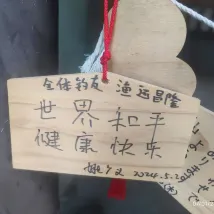 全体钓友 渔运昌隆
世界和平
健康快乐
2024.5.2